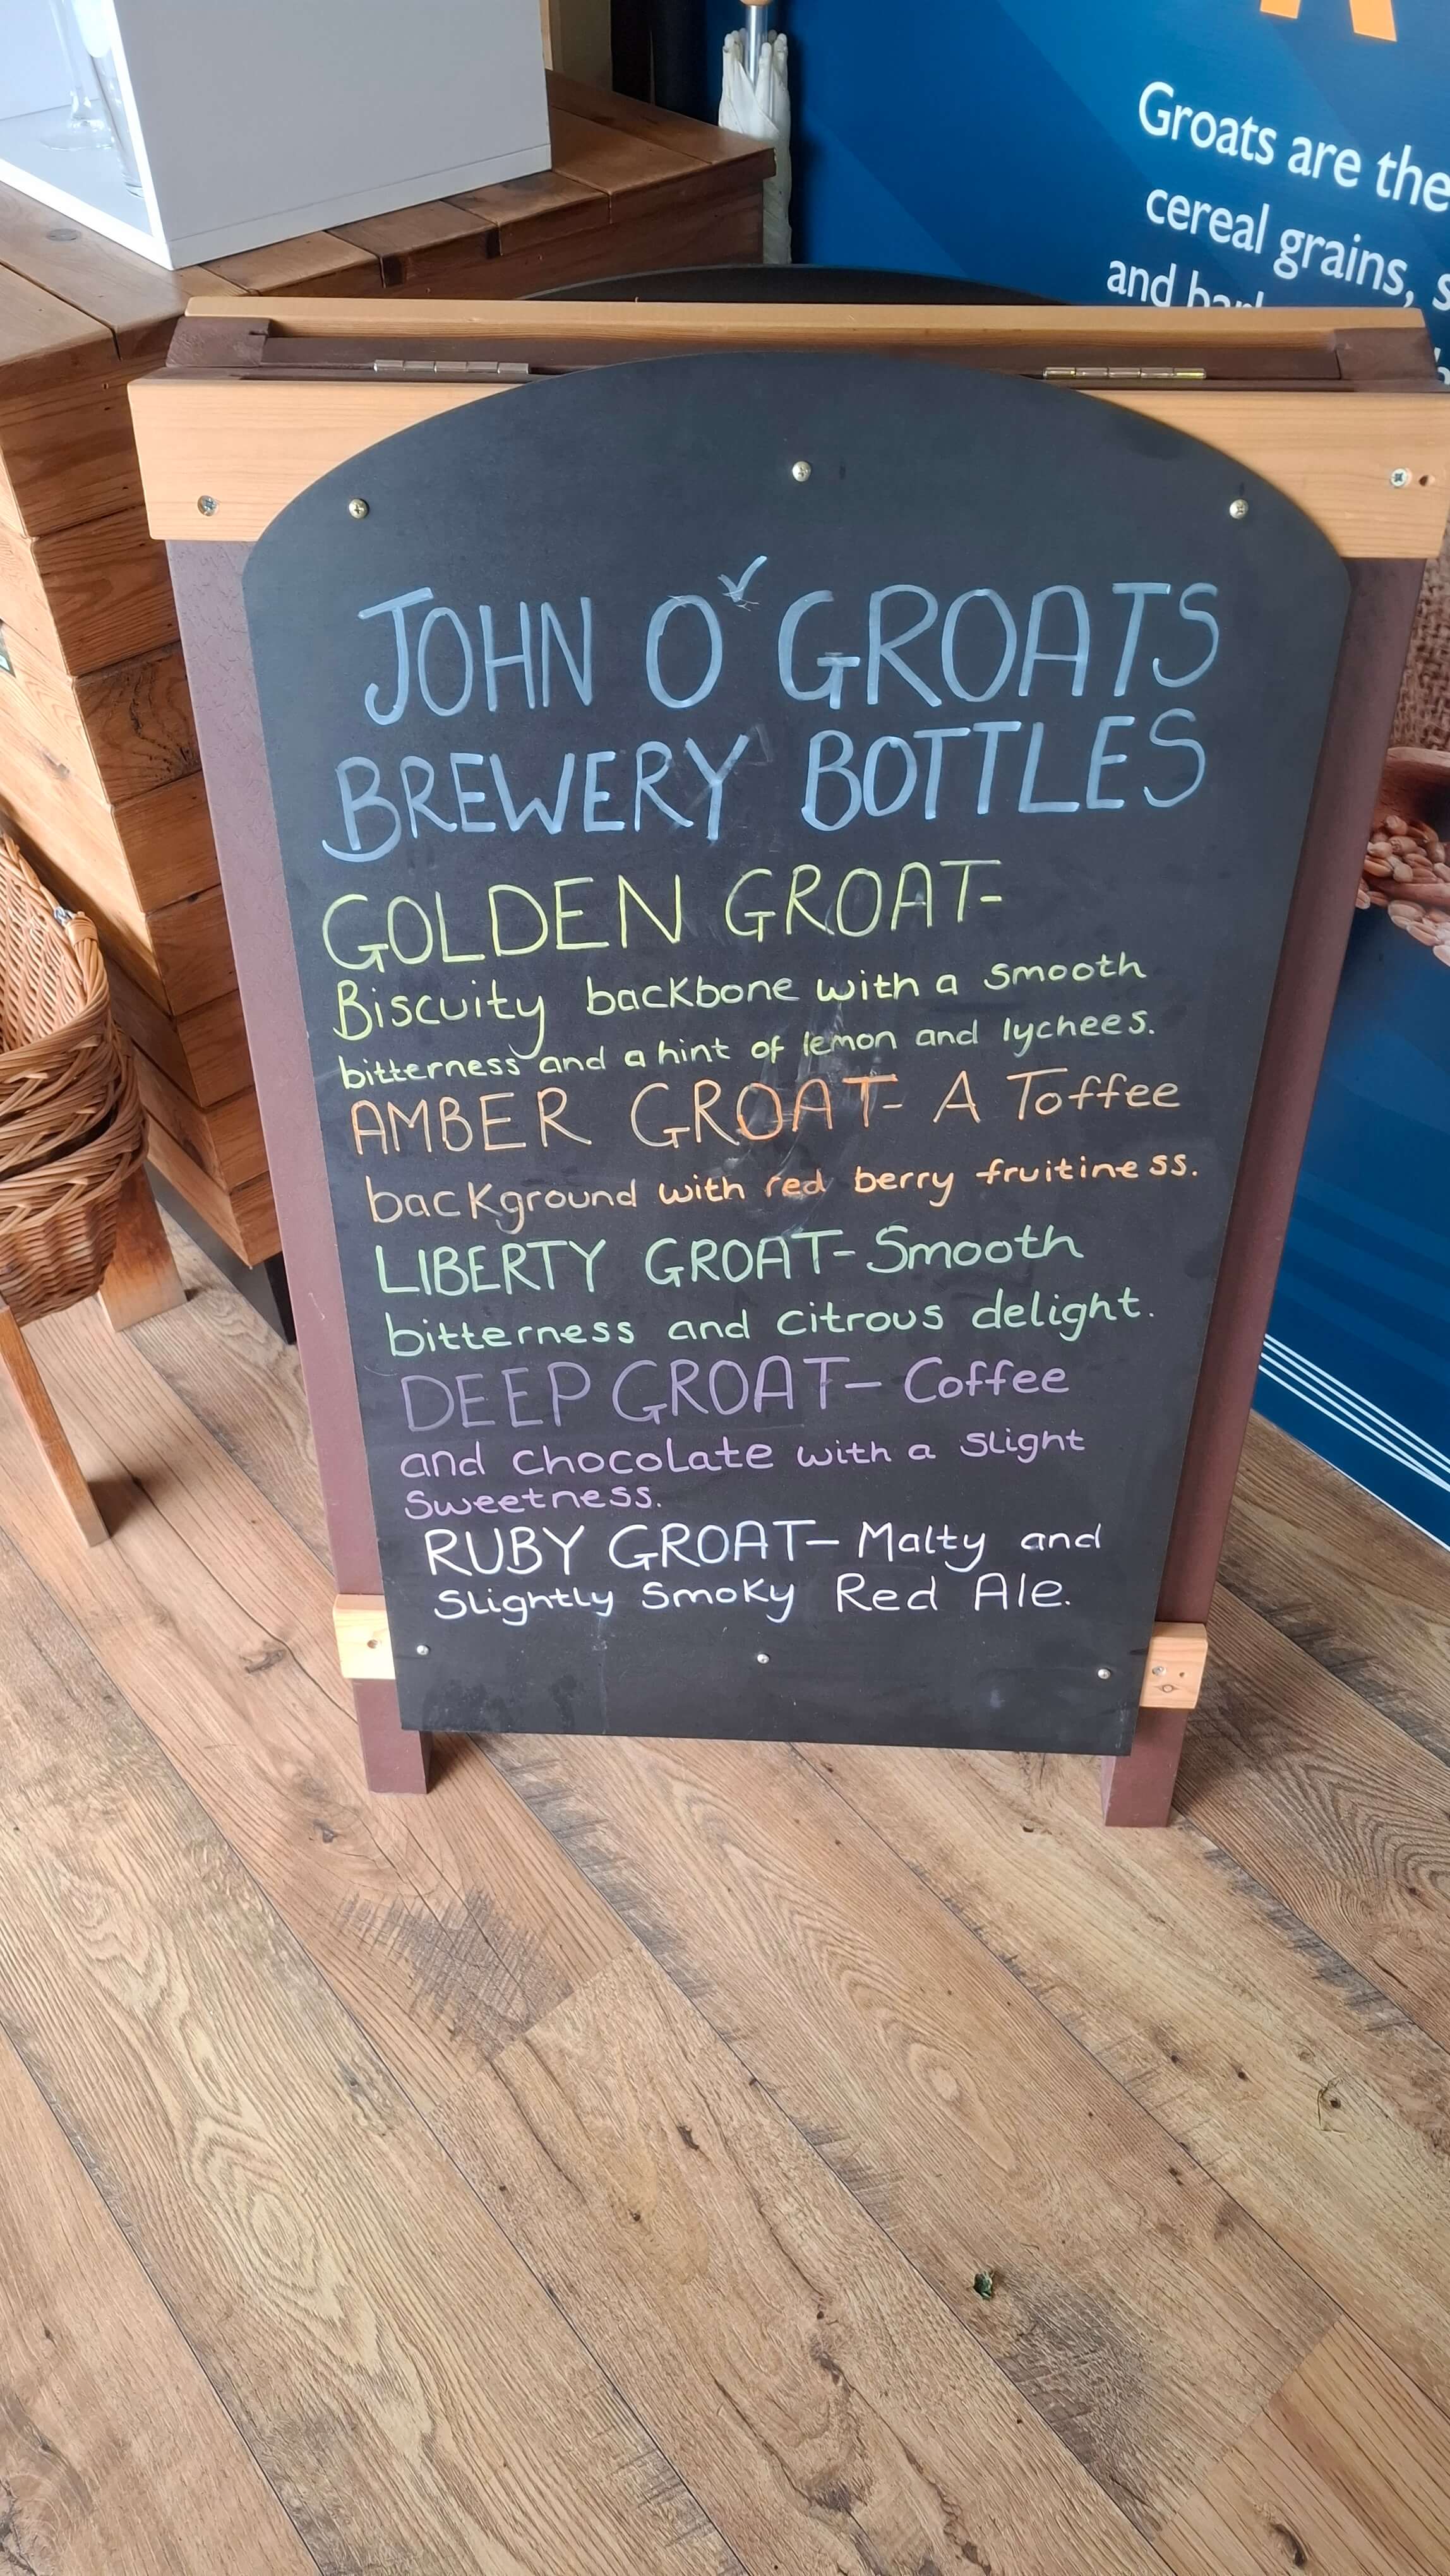 Groats are the
cereal grains,
and
JOHN O'GROATS
BREWERY BOTTLES
GOLDEN GROAT-
Biscuity backbone with a smooth
bitterness and a hint of lemon and lychees.
AMBER GROAT- A Toffee
background with red berry fruitiness.
LIBERTY GROAT- Smooth
bitterness and citrous delight.
DEEP GROAT- Coffee
and chocolate with a slight
Sweetness.
RUBY GROAT- Malty and
Slightly Smoky Red Ale.